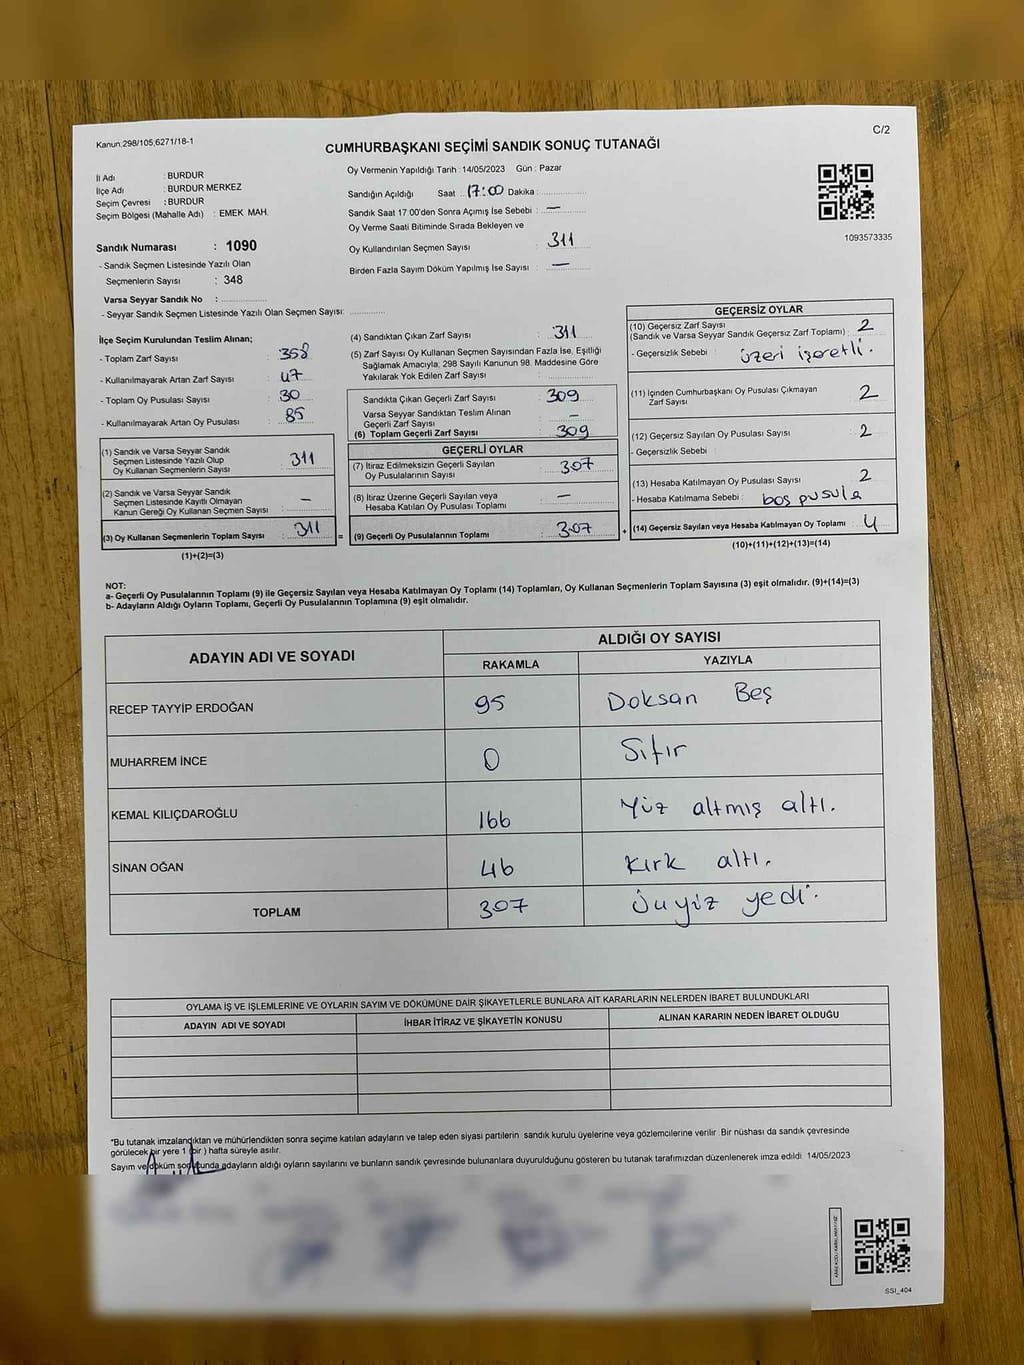 Kanun:298/105;6271/18-1
C/2
CUMHURBAŞKANI SEÇİMİ SANDIK SONUÇ TUTANAĞI
İl Adı : BURDUR
İlçe Adı : BURDUR MERKEZ
Seçim Çevresi : BURDUR
Seçim Bölgesi (Mahalle Adı) : EMEK MAH.
Sandık Numarası : 1090
- Sandık Seçmen Listesinde Yazılı Olan
Seçmenlerin Sayısı : 348
Varsa Seyyar Sandık No :
- Seyyar Sandık Seçmen Listesinde Yazılı Olan Seçmen Sayısı:
Oy Vermenin Yapıldığı Tarih : 14/05/2023 Gün : Pazar
Sandığın Açıldığı Saat 17:00 Dakika :
Sandık Saat 17:00'den Sonra Açımış İse Sebebi : —
Oy Verme Saati Bitiminde Sırada Bekleyen ve
Oy Kullandırılan Seçmen Sayısı : 311
Birden Fazla Sayım Döküm Yapılmış İse Sayısı : —
1093573335
İlçe Seçim Kurulundan Teslim Alınan;
- Toplam Zarf Sayısı : 358
- Kullanılmayarak Artan Zarf Sayısı : 47
- Toplam Oy Pusulası Sayısı : 30
- Kullanılmayarak Artan Oy Pusulası : 85
(1) Sandık ve Varsa Seyyar Sandık
Seçmen Listesinde Yazılı Olup
Oy Kullanan Seçmenlerin Sayısı : 311
(2) Sandık ve Varsa Seyyar Sandık
Seçmen Listesinde Kayıtlı Olmayan
Kanun Gereği Oy Kullanan Seçmen Sayısı : —
(3) Oy Kullanan Seçmenlerin Toplam Sayısı : 311
(1)+(2)=(3)
(4) Sandıktan Çıkan Zarf Sayısı : 311
(5) Zarf Sayısı Oy Kullanan Seçmen Sayısından Fazla İse, Eşitliği
Sağlamak Amacıyla, 298 Sayılı Kanunun 98. Maddesine Göre
Yakılarak Yok Edilen Zarf Sayısı :
Sandıkta Çıkan Geçerli Zarf Sayısı : 309
Varsa Seyyar Sandıktan Teslim Alınan
Geçerli Zarf Sayısı : —
(6) Toplam Geçerli Zarf Sayısı : 309
GEÇERLİ OYLAR
(7) İtiraz Edilmeksizin Geçerli Sayılan
Oy Pusulalarının Sayısı : 307
(8) İtiraz Üzerine Geçerli Sayılan veya
Hesaba Katılan Oy Pusulası Toplamı : —
= (9) Geçerli Oy Pusulalarının Toplamı : 307 +
GEÇERSİZ OYLAR
(10) Geçersiz Zarf Sayısı
(Sandık ve Varsa Seyyar Sandık Geçersiz Zarf Toplamı) : 2
- Geçersizlik Sebebi : üzeri işaretli.
(11) İçinden Cumhurbaşkanı Oy Pusulası Çıkmayan
Zarf Sayısı : 2
(12) Geçersiz Sayılan Oy Pusulası Sayısı : 2
- Geçersizlik Sebebi :
(13) Hesaba Katılmayan Oy Pusulası Sayısı : 2
- Hesaba Katılmama Sebebi : boş pusula
(14) Geçersiz Sayılan veya Hesaba Katılmayan Oy Toplamı : 4
(10)+(11)+(12)+(13)=(14)
NOT:
a- Geçerli Oy Pusulalarının Toplamı (9) ile Geçersiz Sayılan veya Hesaba Katılmayan Oy Toplamı (14) Toplamları, Oy Kullanan Seçmenlerin Toplam Sayısına (3) eşit olmalıdır. (9)+(14)=(3)
b- Adayların Aldığı Oyların Toplamı, Geçerli Oy Pusulalarının Toplamına (9) eşit olmalıdır.
ADAYIN ADI VE SOYADI ALDIĞI OY SAYISI
RAKAMLA YAZIYLA
RECEP TAYYİP ERDOĞAN 95 Doksan Beş
MUHARREM İNCE 0 Sıfır
KEMAL KILIÇDAROĞLU 166 Yüz altmış altı.
SİNAN OĞAN 46 Kırk altı.
TOPLAM 307 üuyüz yedi.
OYLAMA İŞ VE İŞLEMLERİNE VE OYLARIN SAYIM VE DÖKÜMÜNE DAİR ŞİKAYETLERLE BUNLARA AİT KARARLARIN NELERDEN İBARET BULUNDUKLARI
ADAYIN ADI VE SOYADI İHBAR İTİRAZ VE ŞİKAYETİN KONUSU ALINAN KARARIN NEDEN İBARET OLDUĞU
*Bu tutanak imzalandıktan ve mühürlendikten sonra seçime katılan adayların ve talep eden siyasi partilerin sandık kurulu üyelerine veya gözlemcilerine verilir. Bir nüshası da sandık çevresinde
görülecek bir yere 1 (bir) hafta süreyle asılır.
Sayım ve döküm sonucunda adayların aldığı oyların sayılarını ve bunların sandık çevresinde bulunanlara duyurulduğunu gösteren bu tutanak tarafımızdan düzenlenerek imza edildi. 14/05/2023
SSI_404